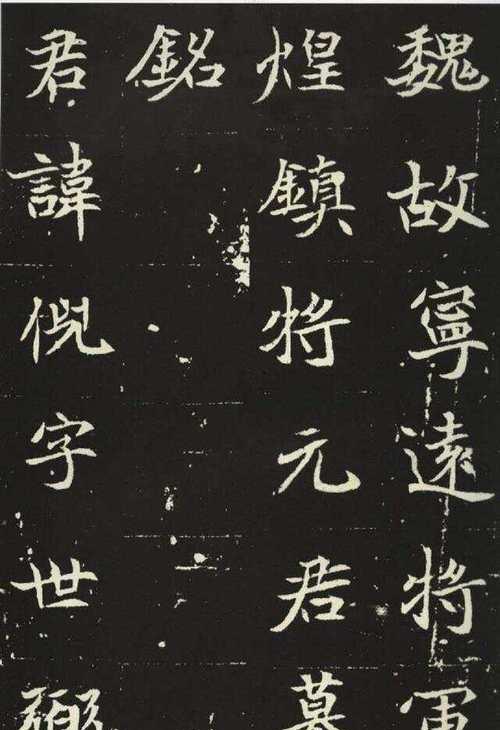 魏故寧遠將軍
煌鎮將元君墓
銘
君諱倪字世弼